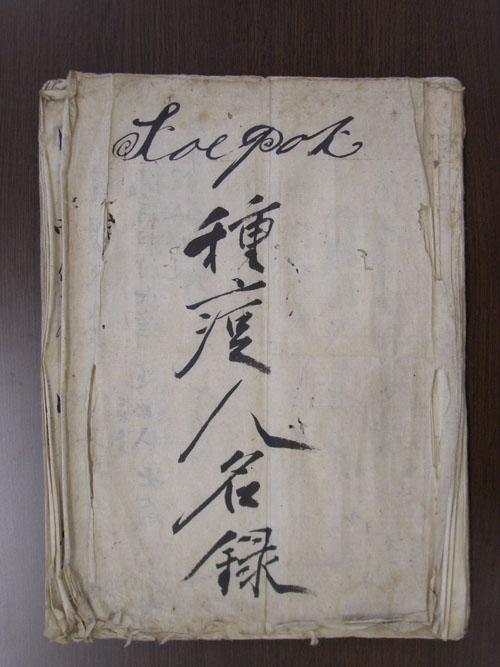 Koepok
種痘人名録